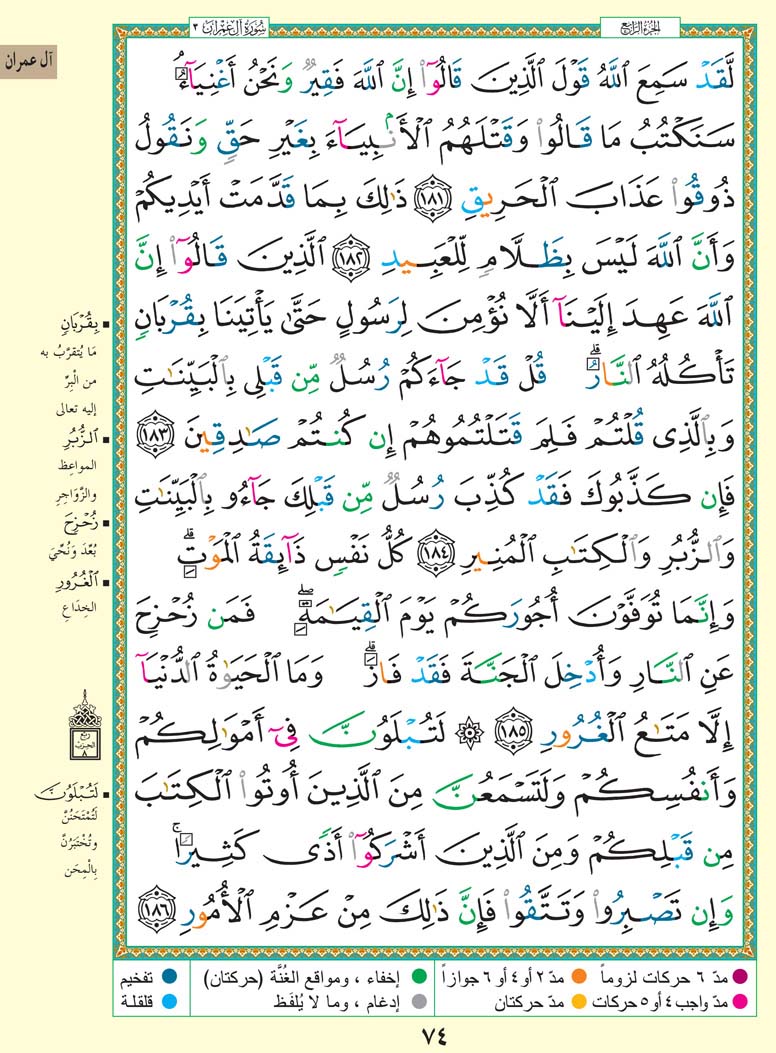 سُورَةُ آلِ عِمْرَانَ ٣
الجُزءُ الرَّابِعُ
آل عمران
لَّقَدْ سَمِعَ ٱللَّهُ قَوْلَ ٱلَّذِينَ قَالُوٓا۟ إِنَّ ٱللَّهَ فَقِيرٌ وَنَحْنُ أَغْنِيَآءُ ۘ
سَنَكْتُبُ مَا قَالُوا۟ وَقَتْلَهُمُ ٱلْأَنۢبِيَآءَ بِغَيْرِ حَقٍّ وَنَقُولُ
ذُوقُوا۟ عَذَابَ ٱلْحَرِيقِ ١٨١ ذَٰلِكَ بِمَا قَدَّمَتْ أَيْدِيكُمْ
وَأَنَّ ٱللَّهَ لَيْسَ بِظَلَّامٍ لِّلْعَبِيدِ ١٨٢ ٱلَّذِينَ قَالُوٓا۟ إِنَّ
ٱللَّهَ عَهِدَ إِلَيْنَآ أَلَّا نُؤْمِنَ لِرَسُولٍ حَتَّىٰ يَأْتِيَنَا بِقُرْبَانٍ
تَأْكُلُهُ ٱلنَّارُ ۗ قُلْ قَدْ جَآءَكُمْ رُسُلٌ مِّن قَبْلِى بِٱلْبَيِّنَـٰتِ
وَبِٱلَّذِى قُلْتُمْ فَلِمَ قَتَلْتُمُوهُمْ إِن كُنتُمْ صَـٰدِقِينَ ١٨٣
فَإِن كَذَّبُوكَ فَقَدْ كُذِّبَ رُسُلٌ مِّن قَبْلِكَ جَآءُو بِٱلْبَيِّنَـٰتِ
وَٱلزُّبُرِ وَٱلْكِتَـٰبِ ٱلْمُنِيرِ ١٨٤ كُلُّ نَفْسٍ ذَآئِقَةُ ٱلْمَوْتِ ۗ
وَإِنَّمَا تُوَفَّوْنَ أُجُورَكُمْ يَوْمَ ٱلْقِيَـٰمَةِ ۖ فَمَن زُحْزِحَ
عَنِ ٱلنَّارِ وَأُدْخِلَ ٱلْجَنَّةَ فَقَدْ فَازَ ۗ وَمَا ٱلْحَيَوٰةُ ٱلدُّنْيَآ
إِلَّا مَتَـٰعُ ٱلْغُرُورِ ١٨٥ ۞ لَتُبْلَوُنَّ فِىٓ أَمْوَٰلِكُمْ
وَأَنفُسِكُمْ وَلَتَسْمَعُنَّ مِنَ ٱلَّذِينَ أُوتُوا۟ ٱلْكِتَـٰبَ
مِن قَبْلِكُمْ وَمِنَ ٱلَّذِينَ أَشْرَكُوٓا۟ أَذًى كَثِيرًا ۚ
وَإِن تَصْبِرُوا۟ وَتَتَّقُوا۟ فَإِنَّ ذَٰلِكَ مِنْ عَزْمِ ٱلْأُمُورِ ١٨٦
بِقُرْبَانٍ
مَا يُتقرَّبُ به
من البِرِّ
إليه تعالى
الزُّبُرِ
المواعِظ
والزَّواجِرِ
زُحْزِحَ
بُعِّدَ وَنُحِّيَ
الْغُرُورِ
الخِدَاعِ
ربع
الحزب
٨
لَتُبْلَوُنَّ
لَتُمْتَحَنُنَّ
وتُخْتَبَرُنَّ
بِالْمِحَنِ
مدّ ٦ حركات لزوماً
مدّ ٢ أو ٤ أو ٦ جوازاً
إخفاء ، ومواقع الغُنَّة (حركتان)
تفخيم
مدّ واجب ٤ أو ٥ حركات
مدّ حركتان
إدغام ، وما لا يُلفَظ
قلقلة
٧٤